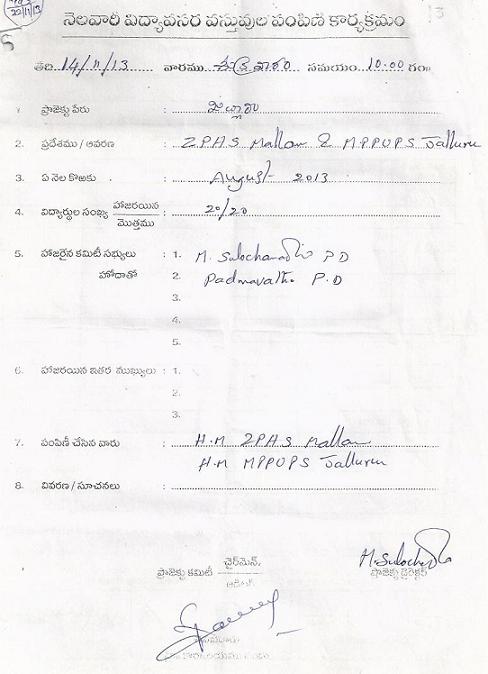 20/11/13
13
5
నెలవారీ విద్యావసర వస్తువుల పంపిణీ కార్యక్రమం
తేది 14/11/13 వారము సమయం 10.00 గం॥
1. ప్రాజెక్టు పేరు :
2. ప్రదేశము / ఆవరణ : ZPHS Mallam & MPPUPS Jalluru
3. ఏ నెల కొఱకు : August 2013
4. విద్యార్థుల సంఖ్య హాజరయిన / మొత్తము : 20/20
5. హాజరైన కమిటీ సభ్యులు : 1. M. Sulochana P D
హోదాతో 2. Padmavathi P.D
3.
4.
5.
6. హాజరయిన ఇతర ముఖ్యులు : 1.
2.
3.
7. పంపిణీ చేసిన వారు : H.M ZPHS Mallam
H.M MPPUPS Jalluru
8. వివరణ / సూచనలు :
ప్రాజెక్టు కమిటీ ఛైర్‌మెన్. M. Sulochana
ప్రాజెక్టు డైరెక్టర్